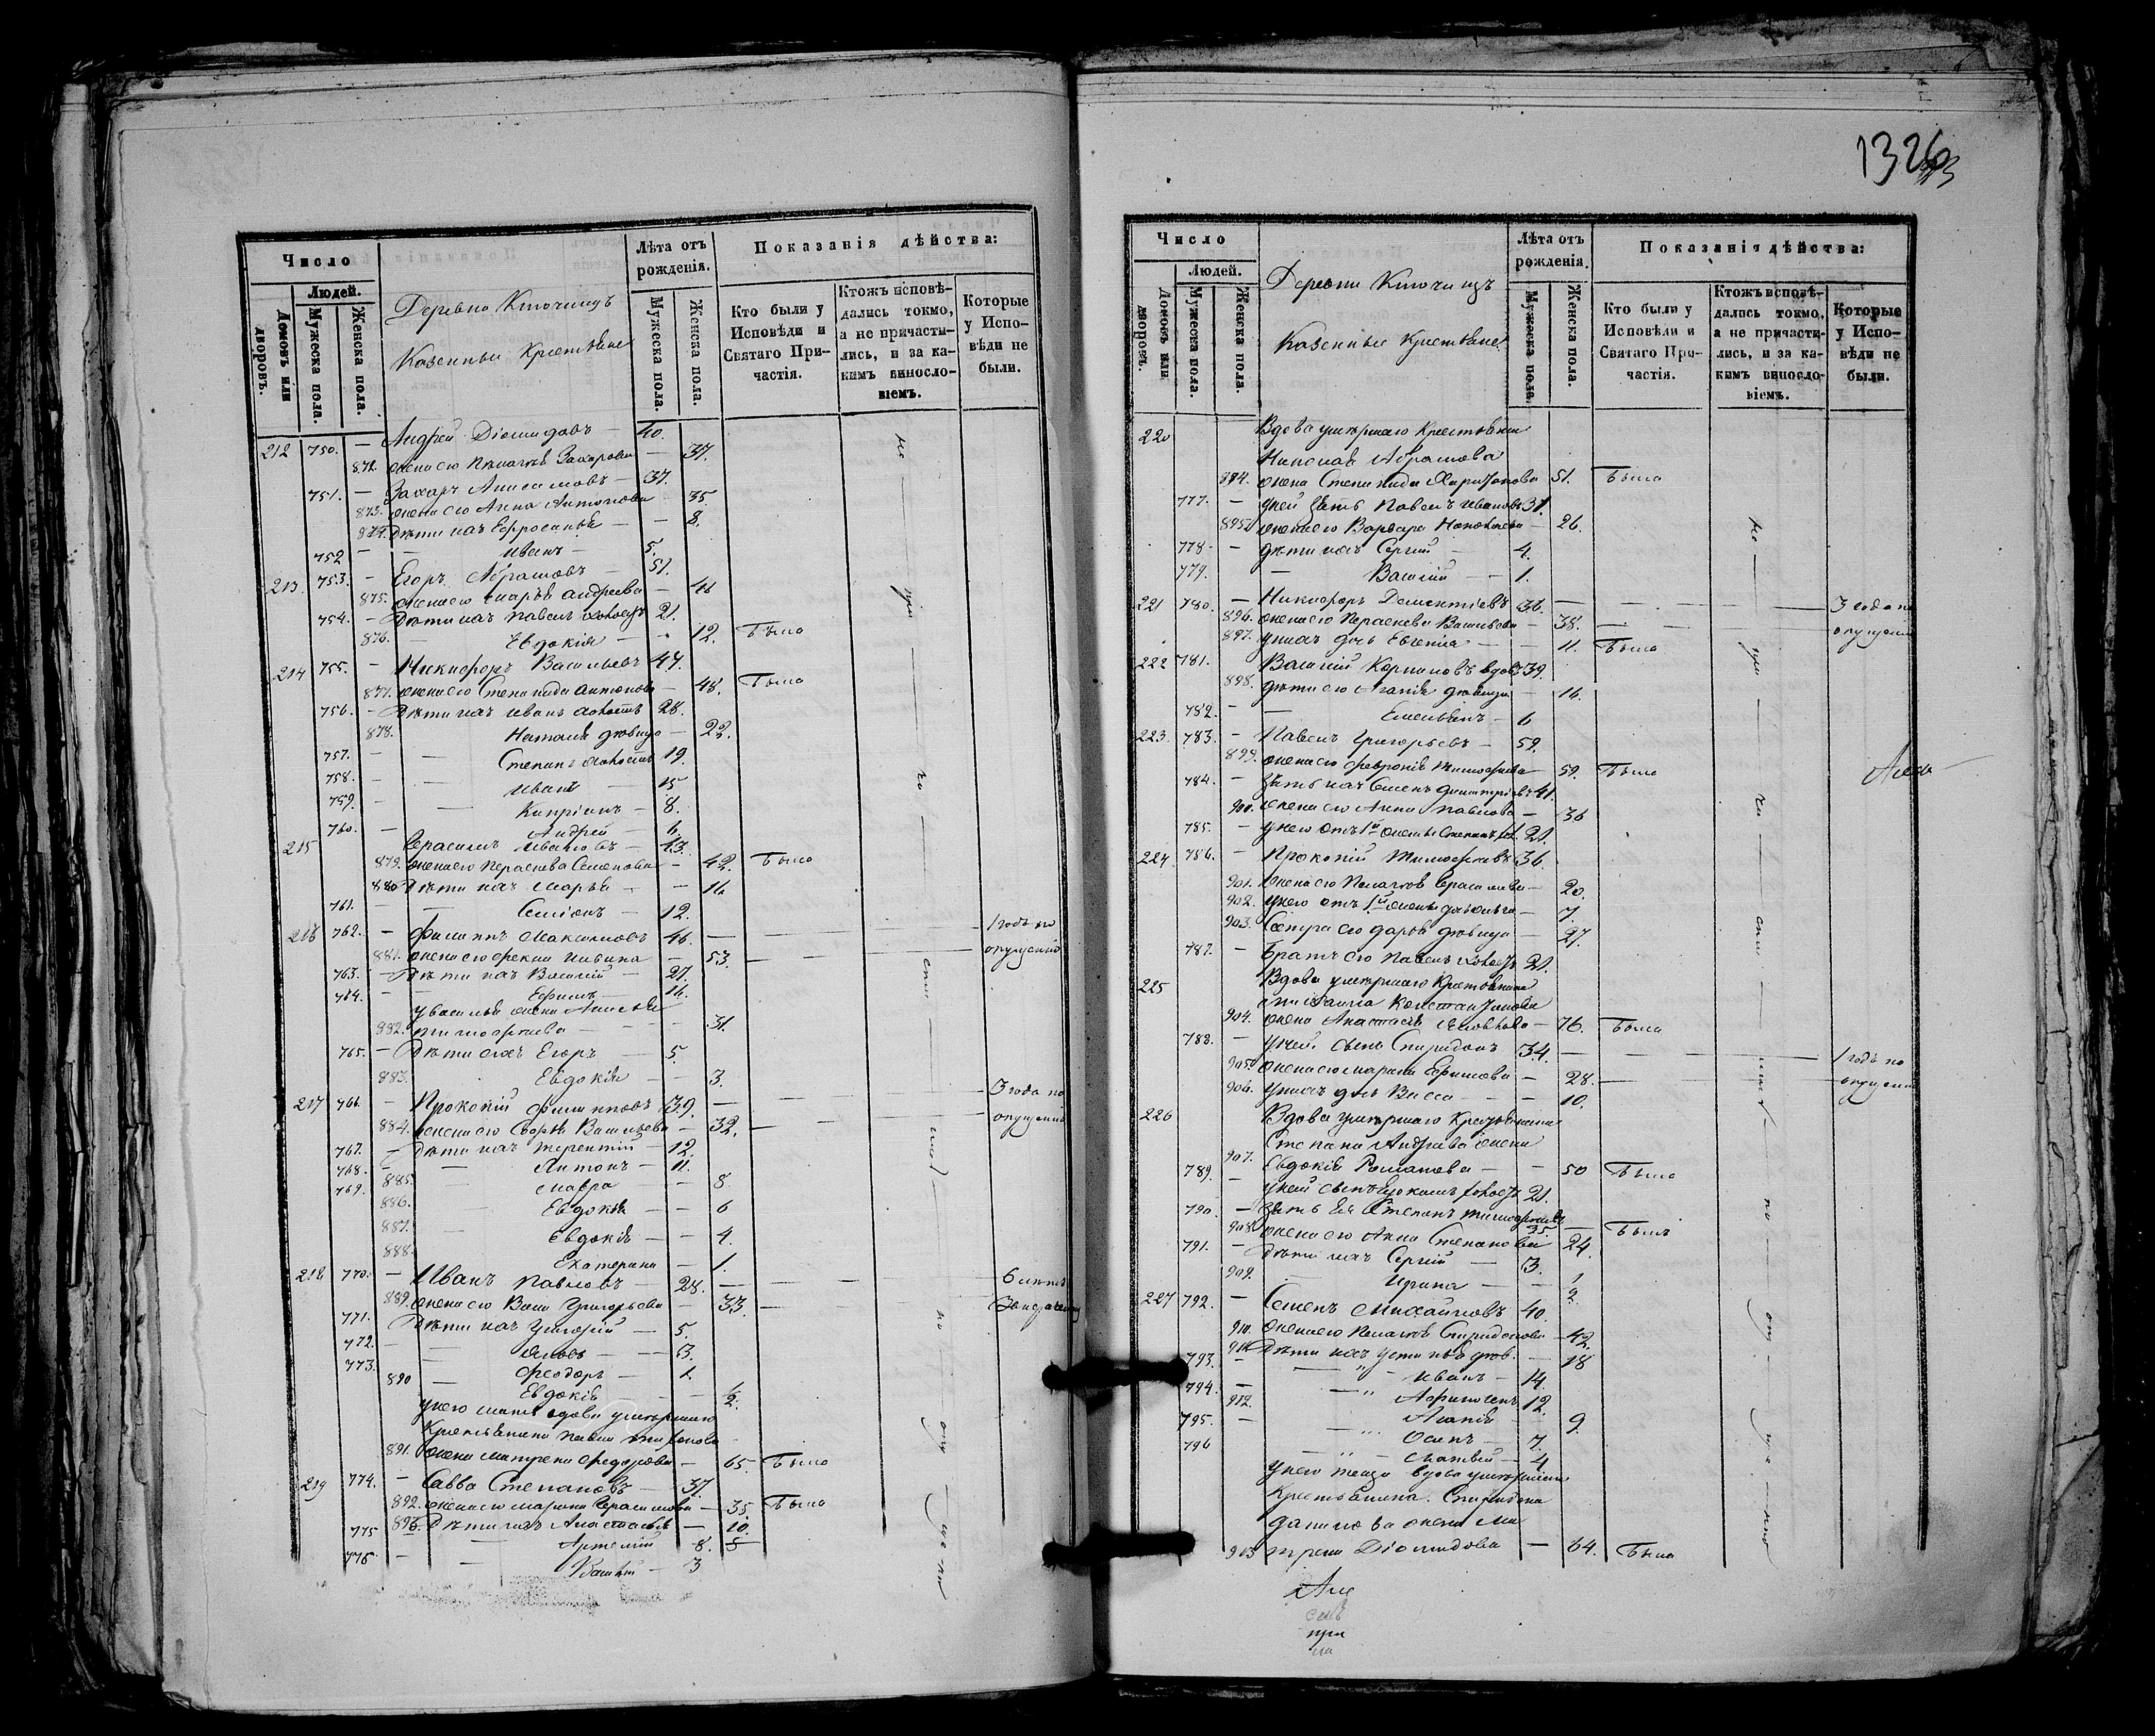 1326
Число
Людей.
Домовъ или дворовъ.
Мужеска пола.
Женска пола.
Деревня Ключищъ
Казенные Крестьяне
Лѣта отъ рожденія.
Мужеска пола.
Женска пола.
Показанія дѣйства:
Кто были у Исповѣди и Святаго Причастія.
Ктожъ исповѣдались токмо, а не причастились, и за какимъ винословіемъ.
Которые у Исповѣди не были.
212 750. — Андрей Діомидовъ — 40.
872. жена его Пелагея Захарова — 37.
751. — Захаръ Анисимовъ — 37.
873. жена его Анна Антонова 35.
874. Дѣти ихъ Ефросинья — — 8.
752 — — Иванъ — 5.
213 753. — Егоръ Абрамовъ — 51.
875. жена его Марья Андреева — 46
754. — Дѣти ихъ Павелъ холостъ 21.
876. — Евдокія — — 12. Была
214 755. — Никифоръ Васильевъ 47.
877. жена его Степанида Антонова — 48. Была
756. — Дѣти ихъ Иванъ холостъ 28.
878. Наталья дѣвица — 22.
757. — — Степанъ холостъ 19.
758. — — Иванъ — 15
759. — — Кипріанъ — 8.
760. — Андрей — 6.
215 Герасимъ Ивановъ — 43.
879. жена его Перасковья Семенова — 42. Была
880 Дѣти ихъ Марья — — 16
761. — — Семіонъ — 12.
216 762. — Филиппъ Максимовъ 46. — — — 1 годъ по
881. жена его Фекла Ильина — 53. — — опущенію
763. — Дѣти ихъ Василій — 27.
764. — — Ефимъ — 16.
у Василья жена Анисья
882. Тимофеева — — — 31.
765. — Дѣти ихъ Егоръ — 5.
883. Евдокія — — 3.
217 766. — Прокопій Филипповъ 39. — — — 3 года по
884. жена его Васильева — 32. — опущенію
767. — Дѣти ихъ Терентій — 12.
768. — — Антонъ — 11.
769. 885. — Мавра — — 8.
886. Евдокія — — 6
887. — Евдокія — — 4.
888. Екатерина — 1.
218 770. — Иванъ Павловъ — 28. — — — 6 лѣтъ
889. жена его Васа Григорьева — 33. —
771. Дѣти ихъ Григорій — 5.
772. — — Яковъ — — 3.
773. — Феодоръ — 1.
890 Евдокія — — ½.
у него мать вдова умершаго
Крестьянина Павла
891. жена Матрена Федорова — 65. Была
219 774. — Савва Степановъ — 37.
892. жена его Марина Герасимова — 35. Была
893. Дѣти ихъ Анастасья — 10.
775 — Артемій 8.
776. — — Василій — 3
Число
Людей.
Домовъ или дворовъ.
Мужеска пола.
Женска пола.
Деревни Ключищъ
Казенные Крестьяне
Лѣта отъ рожденія.
Мужеска пола.
Женска пола.
Показанія дѣйства:
Кто были у Исповѣди и Святаго Причастія.
Ктожъ исповѣдались токмо, а не причастились, и за какимъ винословіемъ.
Которые у Исповѣди не были.
220 Вдова умершаго Крестьянина
Николая Абрамова
894. жена Степанида Харитонова 51. Была
777. — у ней Зять Павелъ Ивановъ 31.
895. жена его Варвара — 26.
778. — дѣти ихъ Сергій — 4.
779. — Василій — — 1.
221 780. — Никифоръ Дементіевъ 36. — — — 3 года по
896. жена его Перасковья Васильева — 38. — опущенію
897. у нихъ дочь Евгенія — — 11. Была
222 781. Василій Корниловъ вдовъ 39.
898. дѣти его Агапія дѣвица — 16.
782. — — Емельянъ — 6
223. 783. — Павелъ Григорьевъ — 59.
899. жена его Февронія Тимофеева 59. Была
784. — Зять ихъ Семенъ Димитріевъ 41.
900. жена его Анна Павлова — 36
785. — у него отъ 1й жены Степанъ хол. 21.
224 786. — Прокопій Тимофеевъ 36.
901. жена его Пелагея Герасимова — 20.
902. у него отъ 1й жены — 7.
903. Сестра его Дарья дѣвица — 27.
787. — Братъ его Павелъ холостъ 21.
225 Вдова умершаго Крестьянина
Константинова
904. жена Анастасія Яковлева — 76. Была
788. — у ней сынъ Спиридонъ 34. — — — 1 годъ по
905. жена его Марина Ефимова — 28. — опущенію
906. у нихъ дочь Васса — — 10.
226 Вдова умершаго Крестьянина
Степана Андреева жена
907. Евдокія Романова — — 50 Была
789. — у ней сынъ холостъ 21.
790. — Зять ея Степанъ Тимофеевъ 35. — Былъ
908. жена его Анна Степанова 24.
791. — Дѣти ихъ Сергій — 3.
909. — Ирина — — ½.
227 792. — Семенъ Михайловъ 40.
910. жена его Пелагея Спиридонова — 42.
911. Дѣти ихъ Устинья дѣв. — 18
793. — — Иванъ — 14.
794. — — 12.
912. Агапія 9.
795. — — Осипъ — 7.
796 — Матвей — 4
у него теща вдова умершаго
Крестьянина Спиридона
Данилова жена Ма
913 трена Діомидова — 64. Была